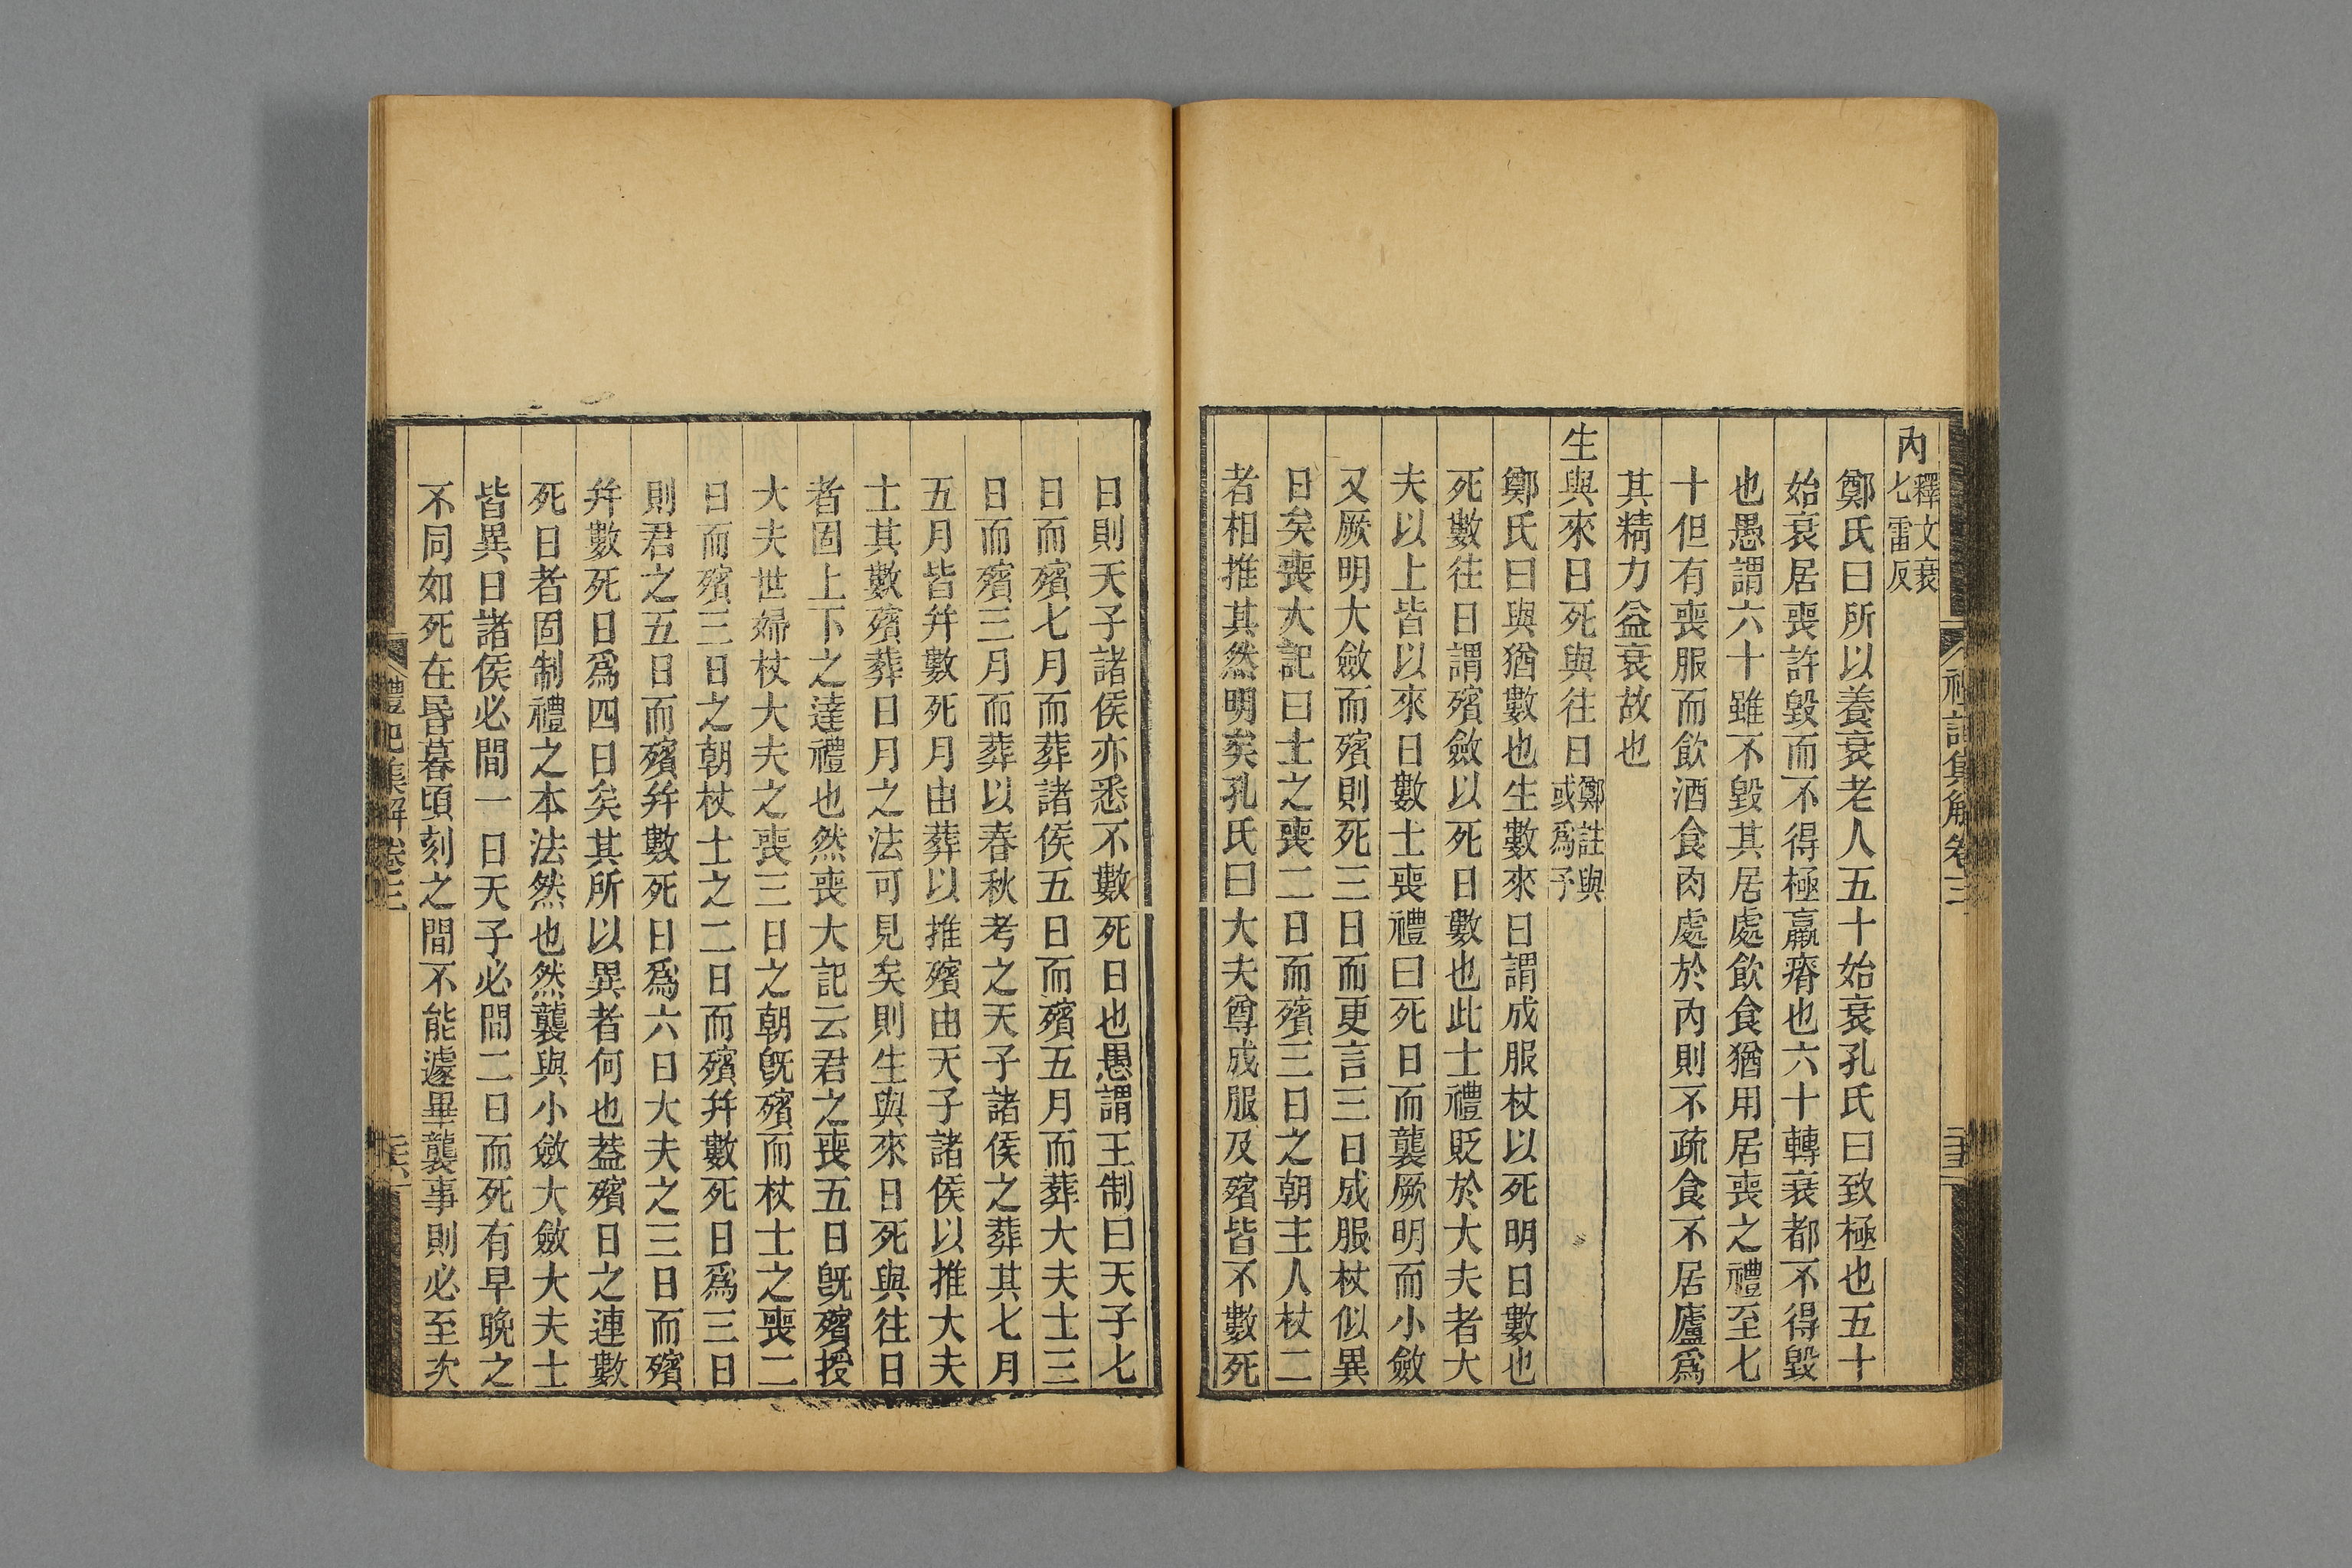 禮記集解卷三
內釋文衰七雷反
鄭氏曰所以養衰老人五十始衰孔氏曰致極也五十
始衰居喪許毀而不得極羸瘠也六十轉衰都不得毀
也愚謂六十雖不毀其居處飲食猶用居喪之禮至七
十但有喪服而飲酒食肉處於內則不疏食不居廬爲
其精力益衰故也
生與來日死與往日鄭註與或爲予
鄭氏曰與猶數也生數來日謂成服杖以死明日數也
死數往日謂殯斂以死日數也此士禮貶於大夫者大
夫以上皆以來日數士喪禮曰死日而襲厥明而小斂
又厥明大斂而殯則死三日而更言三日成服杖似異
日矣喪大記曰士之喪二日而殯三日之朝主人杖二
者相推其然明矣孔氏曰大夫尊成服及殯皆不數死
日則天子諸侯亦悉不數死日也愚謂王制曰天子七
日而殯七月而葬諸侯五日而殯五月而葬大夫士三
日而殯三月而葬以春秋考之天子諸侯之葬其七月
五月皆幷數死月由葬以推殯由天子諸侯以推大夫
士其數殯葬日月之法可見矣則生與來日死與往日
者固上下之達禮也然喪大記云君之喪五日旣殯授
大夫世婦杖大夫之喪三日之朝旣殯而杖士之喪二
日而殯三日之朝杖士之二日而殯幷數死日爲三日
則君之五日而殯幷數死日爲六日大夫之三日而殯
幷數死日爲四日矣其所以異者何也葢殯日之連數
死日者固制禮之本法然也然襲與小斂大斂大夫士
皆異日諸侯必間一日天子必間二日而死有早晚之
不同如死在昏暮頃刻之間不能遽畢襲事則必至次
禮記集解卷三